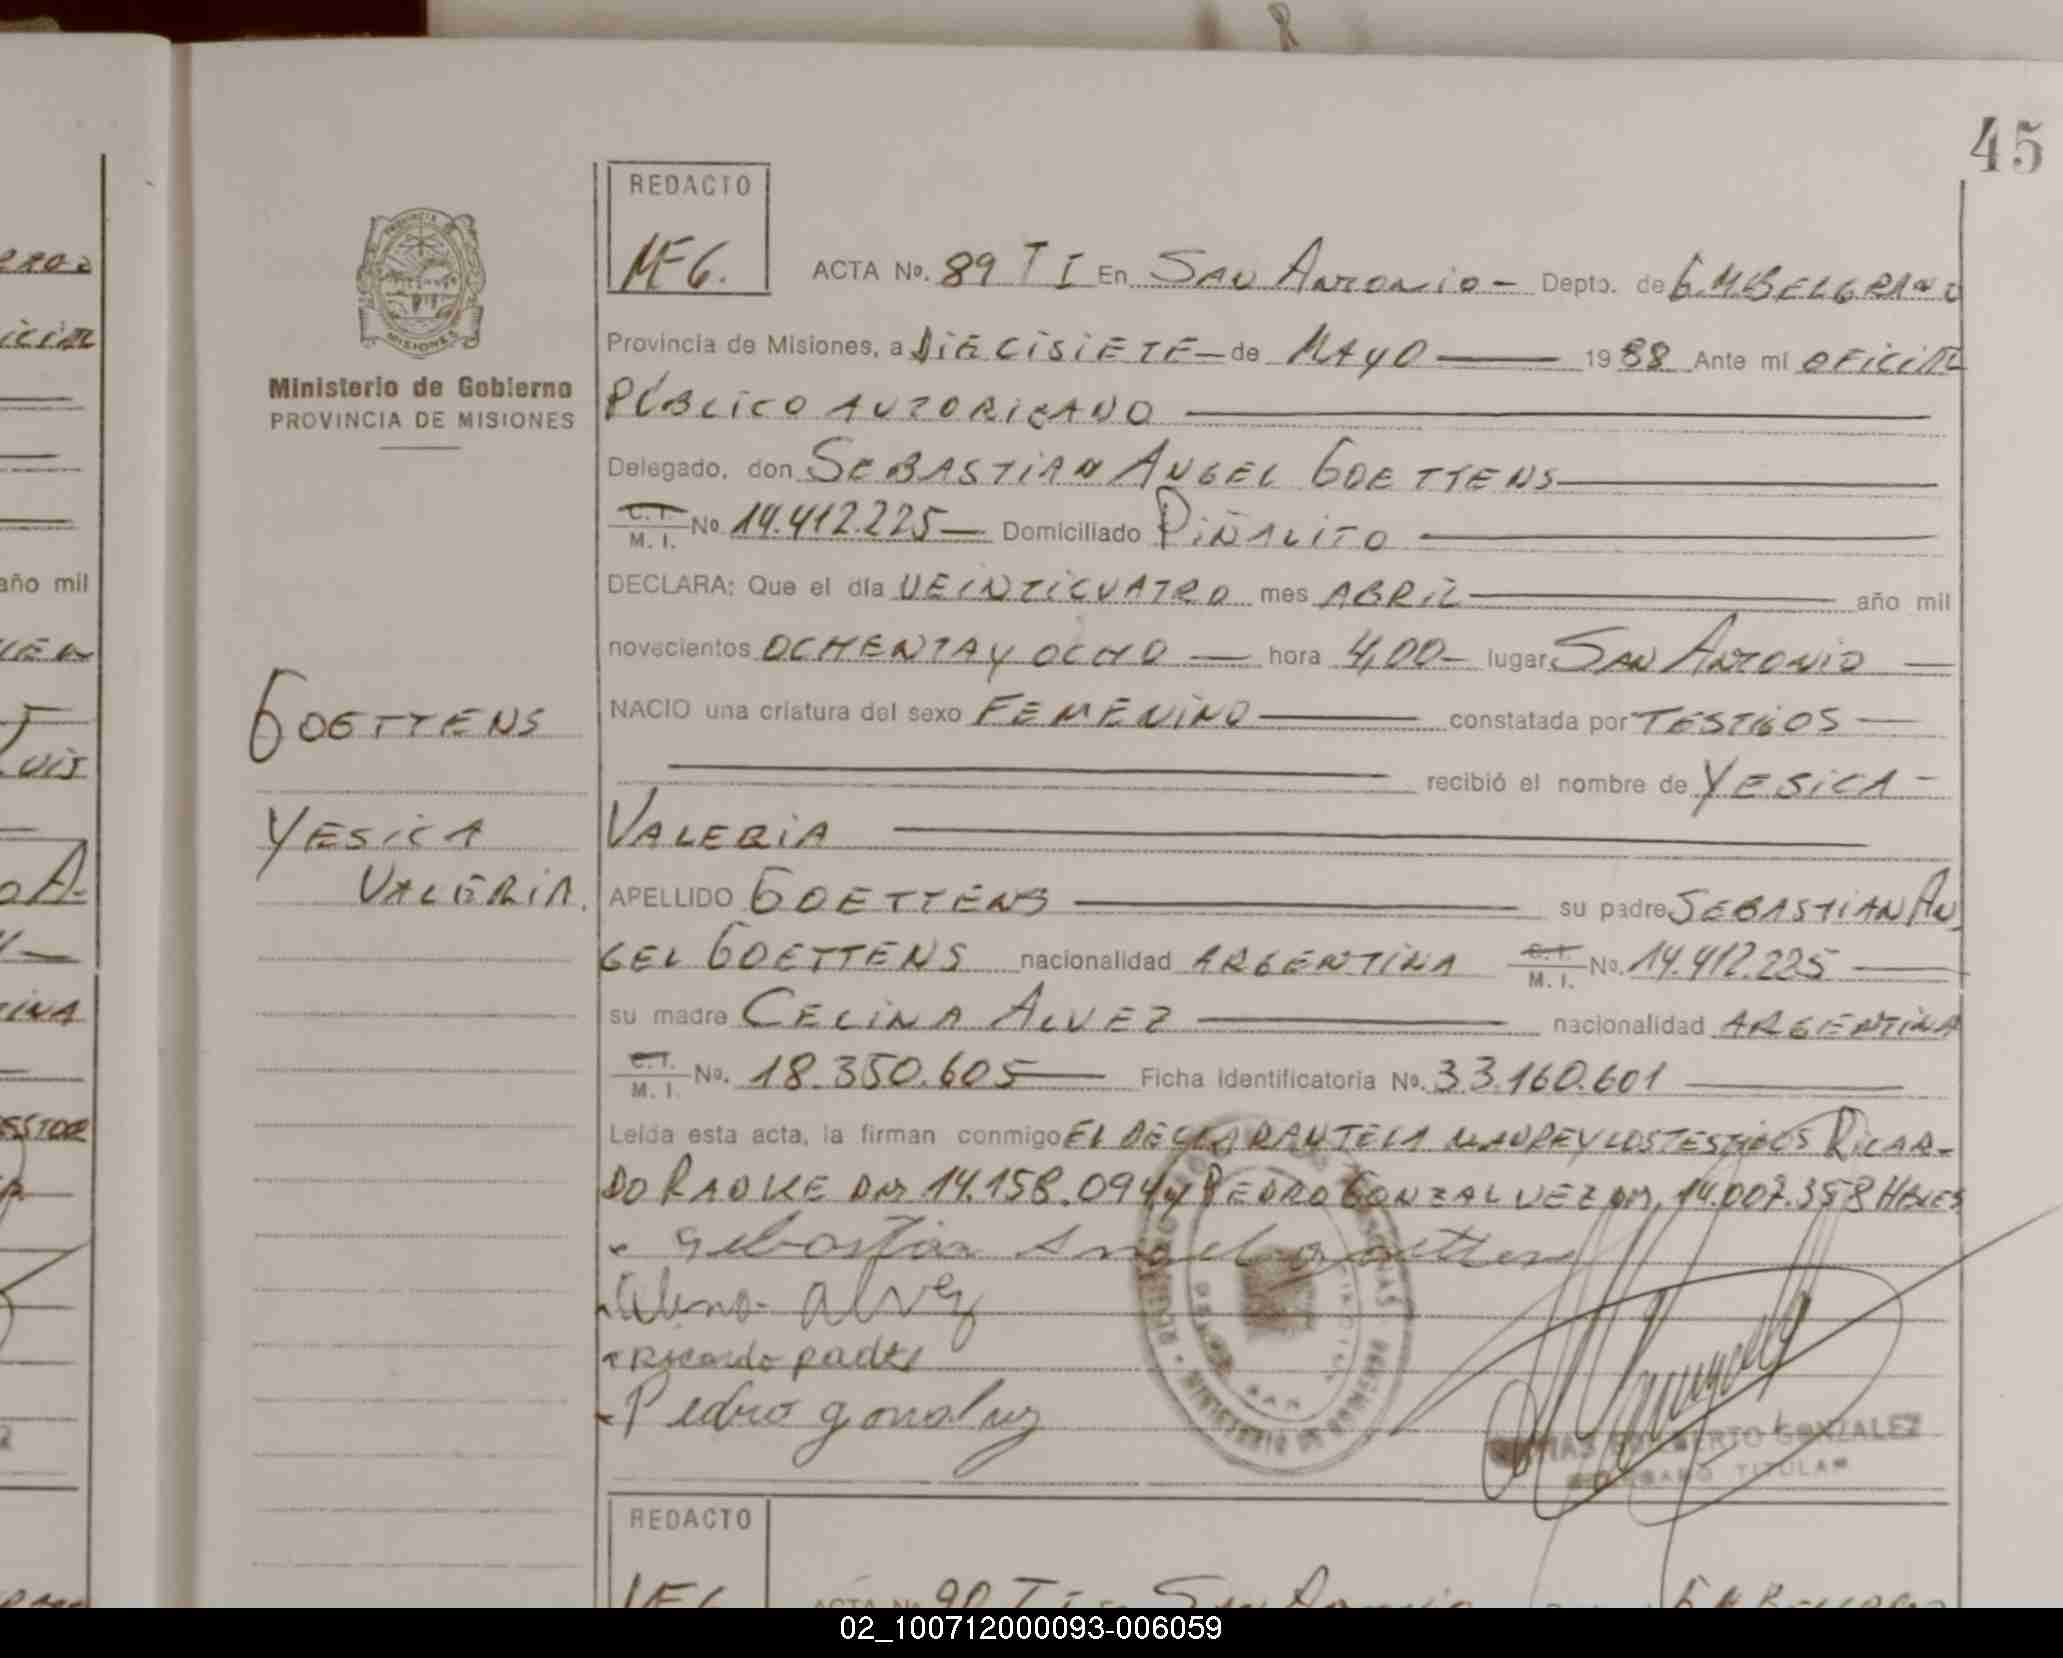 45
REDACTO
MEG.
ACTA No. 89 T I En San Antonio - Depto. de G.M. BELGRANO
Provincia de Misiones, a DIECISIETE - de MAYO 1988 Ante mi OFICIAL
PÚBLICO AUTORIZADO
Delegado, don SEBASTIAN ANGEL GOETTENS
C.I.
M. I. No. 14.412.225 - Domiciliado PIÑALITO
DECLARA: Que el día VEINTICUATRO mes ABRIL año mil
novecientos OCHENTA y OCHO - hora 4,00 - lugar SAN ANTONIO
NACIO una criatura del sexo FEMENINO constatada por TESTIGOS
recibió el nombre de YESICA -
VALERIA
APELLIDO GOETTENS su padre SEBASTIAN AN
GEL GOETTENS nacionalidad ARGENTINA C.I.
M. I. No. 14.412.225
su madre CELINA ALVEZ nacionalidad ARGENTINA
C.I.
M. I. No. 18.350.605 Ficha Identificatoria No. 33.160.601
Leida esta acta, la firman conmigo EL DECLARANTE LA MADRE Y LOS TESTIGOS RICAR-
DO RADKE DNI 14.158.094 y PEDRO GONZALVEZ DNI 14.007.358
Sebastian Angel Goettens
Celina Alvez
Ricardo
Pedro
GONZALEZ
TITULAR
MINISTERIO DE
PROVINCIA DE
MISIONES
Ministerio de Gobierno
PROVINCIA DE MISIONES
GOETTENS
YESICA
VALERIA.
REDACTO
ACTA No. 90 T I En San Antonio
año mil
02_100712000093-006059